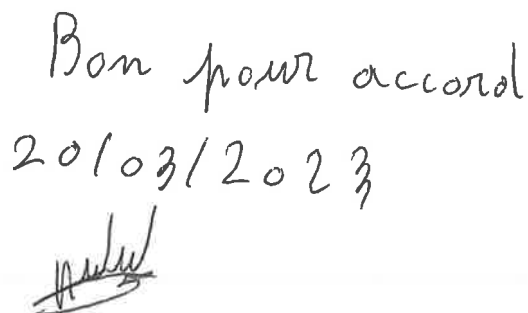 Bon pour accord
20/03/2023